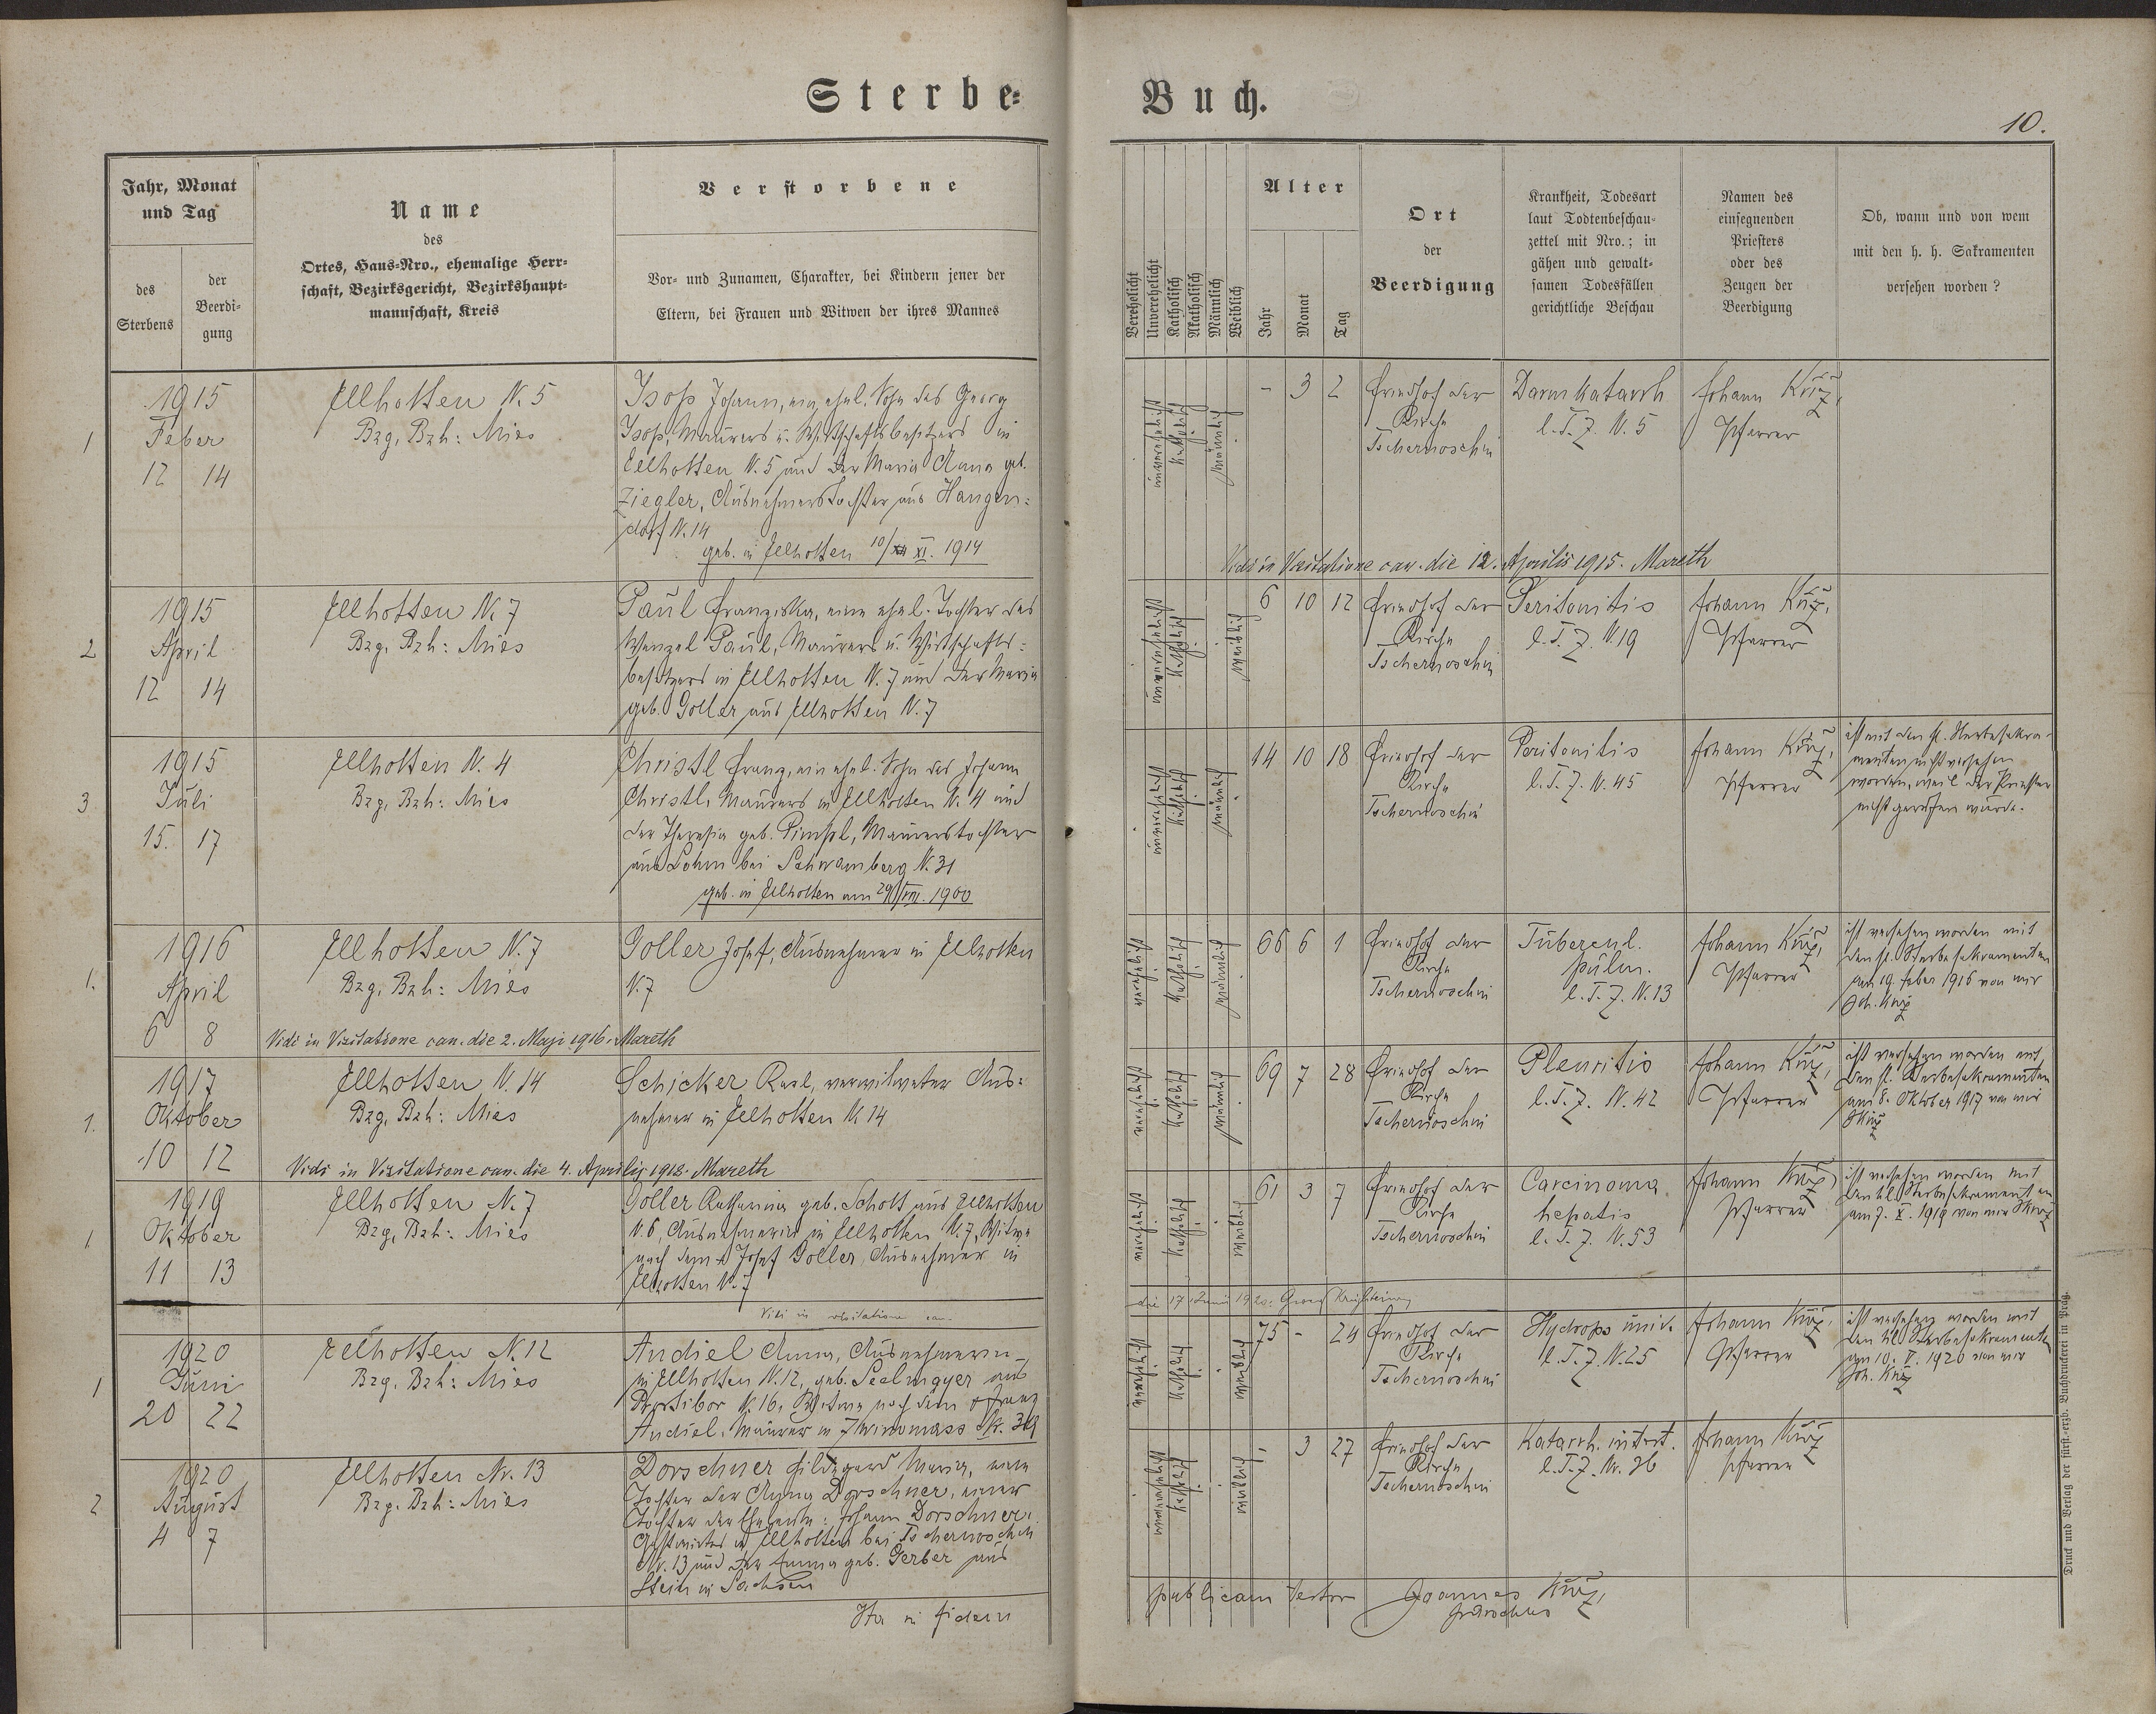 Sterbe-
Buch.
10.
Jahr, Monat
und Tag
des
Sterbens
der
Beerdi-
gung
Name
des
Ortes, Haus-Nro., ehemalige Herr-
schaft, Bezirksgericht, Bezirkshaupt-
mannschaft, Kreis
Verstorbene
Vor- und Zunamen, Charakter, bei Kindern jener der
Eltern, bei Frauen und Witwen der ihres Mannes
Verehelicht
Unverehelicht
Katholisch
Akatholisch
Männlich
Weiblich
Alter
Jahr
Monat
Tag
Ort
der
Beerdigung
Krankheit, Todesart
laut Todtenbeschau-
zettel mit Nro.; in
gähen und gewalt-
samen Todesfällen
gerichtliche Beschau
Namen des
einsegnenden
Priesters
oder des
Zeugen der
Beerdigung
Ob, wann und von wem
mit den h. h. Sakramenten
versehen worden ?
1
1915
Feber
12 14
Ellhotten N. 5
Bzg, Bzh: Mies
Isop Johann, ein ehel. Sohn des Georg
Isop, Maurers u. Wirtschaftsbesitzers in
Ellhotten N. 5 und der Maria Anna geb.
Ziegler, Ausnehmerstochter aus Hangen-
dorf N. 14
geb. in Ellhotten 10/XI. 1914
unverehelicht
katholisch
männlich
- 3 2
Friedhof der
Kirche
Tschernoschin
Darmkatarrh
l. T. Z. N. 5
Johann
Pfarrer
Vidi in Visitatione can. die 12. Aprilis 1915. Mareth
2
1915
April
12 14
Ellhotten N. 7
Bzg, Bzh: Mies
Paul Franziska, eine ehel. Tochter des
Wenzel Paul, Maurers u. Wirtschafts-
besitzers in Ellhotten N. 7 und der Maria
geb. Goller aus Ellhotten N. 7
unverehelicht
katholisch
weiblich
6 10 12
Friedhof der
Kirche
Tschernoschin
Peritonitis
l. T. Z. N 19
Johann
Pfarrer
3
1915
Juli
15. 17
Ellhotten N. 4
Bzg, Bzh: Mies
Christl Franz, ein ehel. Sohn des Johann
Christl, Maurers in Ellhotten N. 4 und
der Theresia geb. Pimpl, Maurerstochter
aus Lohm bei Schwamberg N. 31
geb. in Ellhotten am 29/VIII. 1900
unverehelicht
katholisch
männlich
14 10 18
Friedhof der
Kirche
Tschernoschin
Peritonitis
l. T. Z. N. 45
Johann
Pfarrer
ist mit den hl. Sterbesakra-
menten nicht versehen
worden, weil der Priester
nicht gerufen wurde.
1.
1916
April
6 8
Ellhotten N. 7
Bzg, Bzh: Mies
Goller Josef, Ausnehmer in Ellhotten
N. 7
Vidi in Visitatione can. die 2. Maji 1916. Mareth
verehelicht
katholisch
männlich
66 6 1
Friedhof der
Kirche
Tschernoschin
Tubercul.
pulm.
l. T. Z. N. 13
Johann
Pfarrer
ist versehen worden mit
den hl. Sterbesakramenten
am 19. Feber 1916 von mir
Joh.
1.
1917
Oktober
10 12
Ellhotten N. 14
Bzg, Bzh: Mies
Schicker Karl, verwitweter Aus-
nehmer in Ellhotten N 14
Vidi in Visitatione can. die 4. Aprilis 1918. Mareth
verehelicht
katholisch
männlich
69 7 28
Friedhof der
Kirche
Tschernoschin
Pleuritis
l. T. Z. N. 42
Johann
Pfarrer
ist versehen worden mit
den hl. Sterbesakramenten
am 8. Oktober 1917 von mir
1
1919
Oktober
11 13
Ellhotten N. 7
Bzg, Bzh: Mies
Goller Katharina geb. Schott aus Ellhotten
N. 6, Ausnehmerin in Ellhotten N. 7, Witwe
nach dem + Josef Goller, Ausnehmer in
Ellhotten N. 7
verehelicht
katholisch
weiblich
61 3 7
Friedhof der
Kirche
Tschernoschin
Carcinoma
hepatis
l. T. Z. N. 53
Johann
Pfarrer
ist versehen worden mit
den hl. Sterbesakramenten
am 7. X. 1919 von mir
Vidi in visitatione can.
die 17 Junii 1920.
1
1920
Juni
20 22
Ellhotten N. 12
Bzg, Bzh: Mies
Andiel Anna, Ausnehmerin
in Ellhotten N. 12, geb. Seelmayer aus
Prostibor N. 16, Witwe nach dem + Franz
Andiel, Maurer in
verehelicht
katholisch
weiblich
75 - 24
Friedhof der
Kirche
Tschernoschin
Hydrops univ.
l. T. Z. N. 25
Johann
Pfarrer
ist versehen worden mit
den hl. Sterbesakramenten
am 10. V. 1920 von mir
Joh.
2
1920
August
4 7
Ellhotten Nr. 13
Bzg. Bzh: Mies
Dorschner Hildegard Maria, eine
Tochter der Anna Dorschner, einer
Tochter der Eheleute: Johann Dorschner,
Gastwirtes in Ellhotten bei Tschernoschin
Nr. 13 und der Emma geb. Gerber aus
Stein in Sachsen
unverehelicht
katholisch
weiblich
- 3 27
Friedhof der
Kirche
Tschernoschin
Katarrh. intest.
l. T. Z. Nr. 36
Johann
Pfarrer
Ita in fidem
publicam testor Joannes
parochus
Druck und Verlag der fürst.-erzb. Buchdruckerei in Prag.